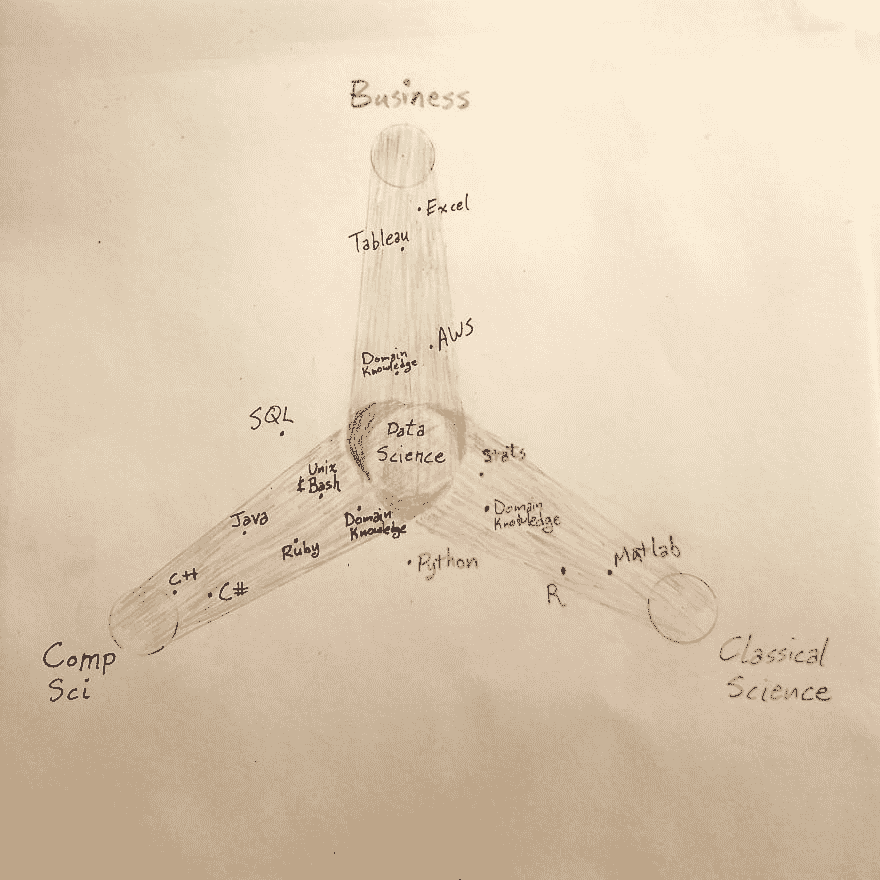 Business
Excel
Tableau
AWS
Domain
Knowledge
SQL
Data
Science
Stats
Unix
& Bash
Domain
Knowledge
Domain
Knowledge
Java
Ruby
Python
Matlab
C++
C#
R
Comp
Sci
Classical
Science